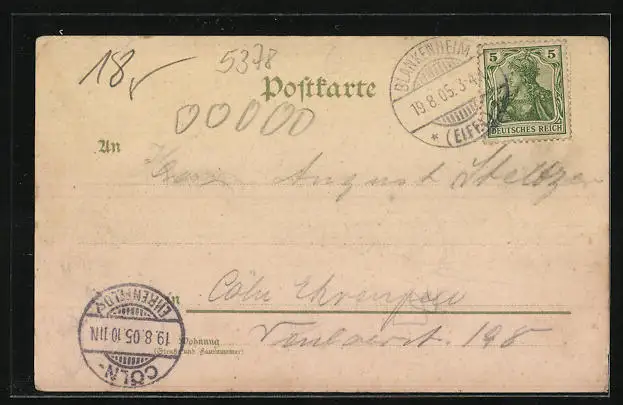 18
5378
Postkarte
00000
BLANKENHEIM
19.8.05. 3-4
* (EIFEL)
5 5
DEUTSCHES REICH
An
Herrn August Steltzer
in Cöln Ehrenfeld
Wohnung
(Straße und Hausnummer)
Venloerst. 198
CÖLN-
EHRENFELD
19.8.05. 10